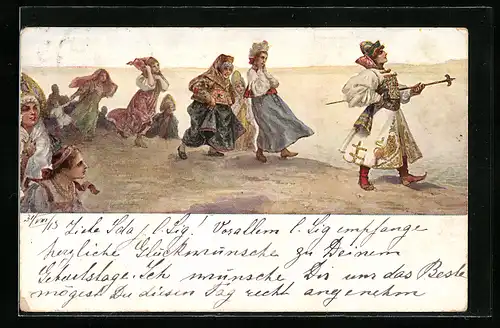 31/VIII/13 Liebe Ida, l. Sig.! Vor allem l. Sig empfange
herzliche Glückwünsche zu Deinem
Geburtstage. Ich wünsche Dir nur das Beste
mögest Du diesen Tag recht angenehm